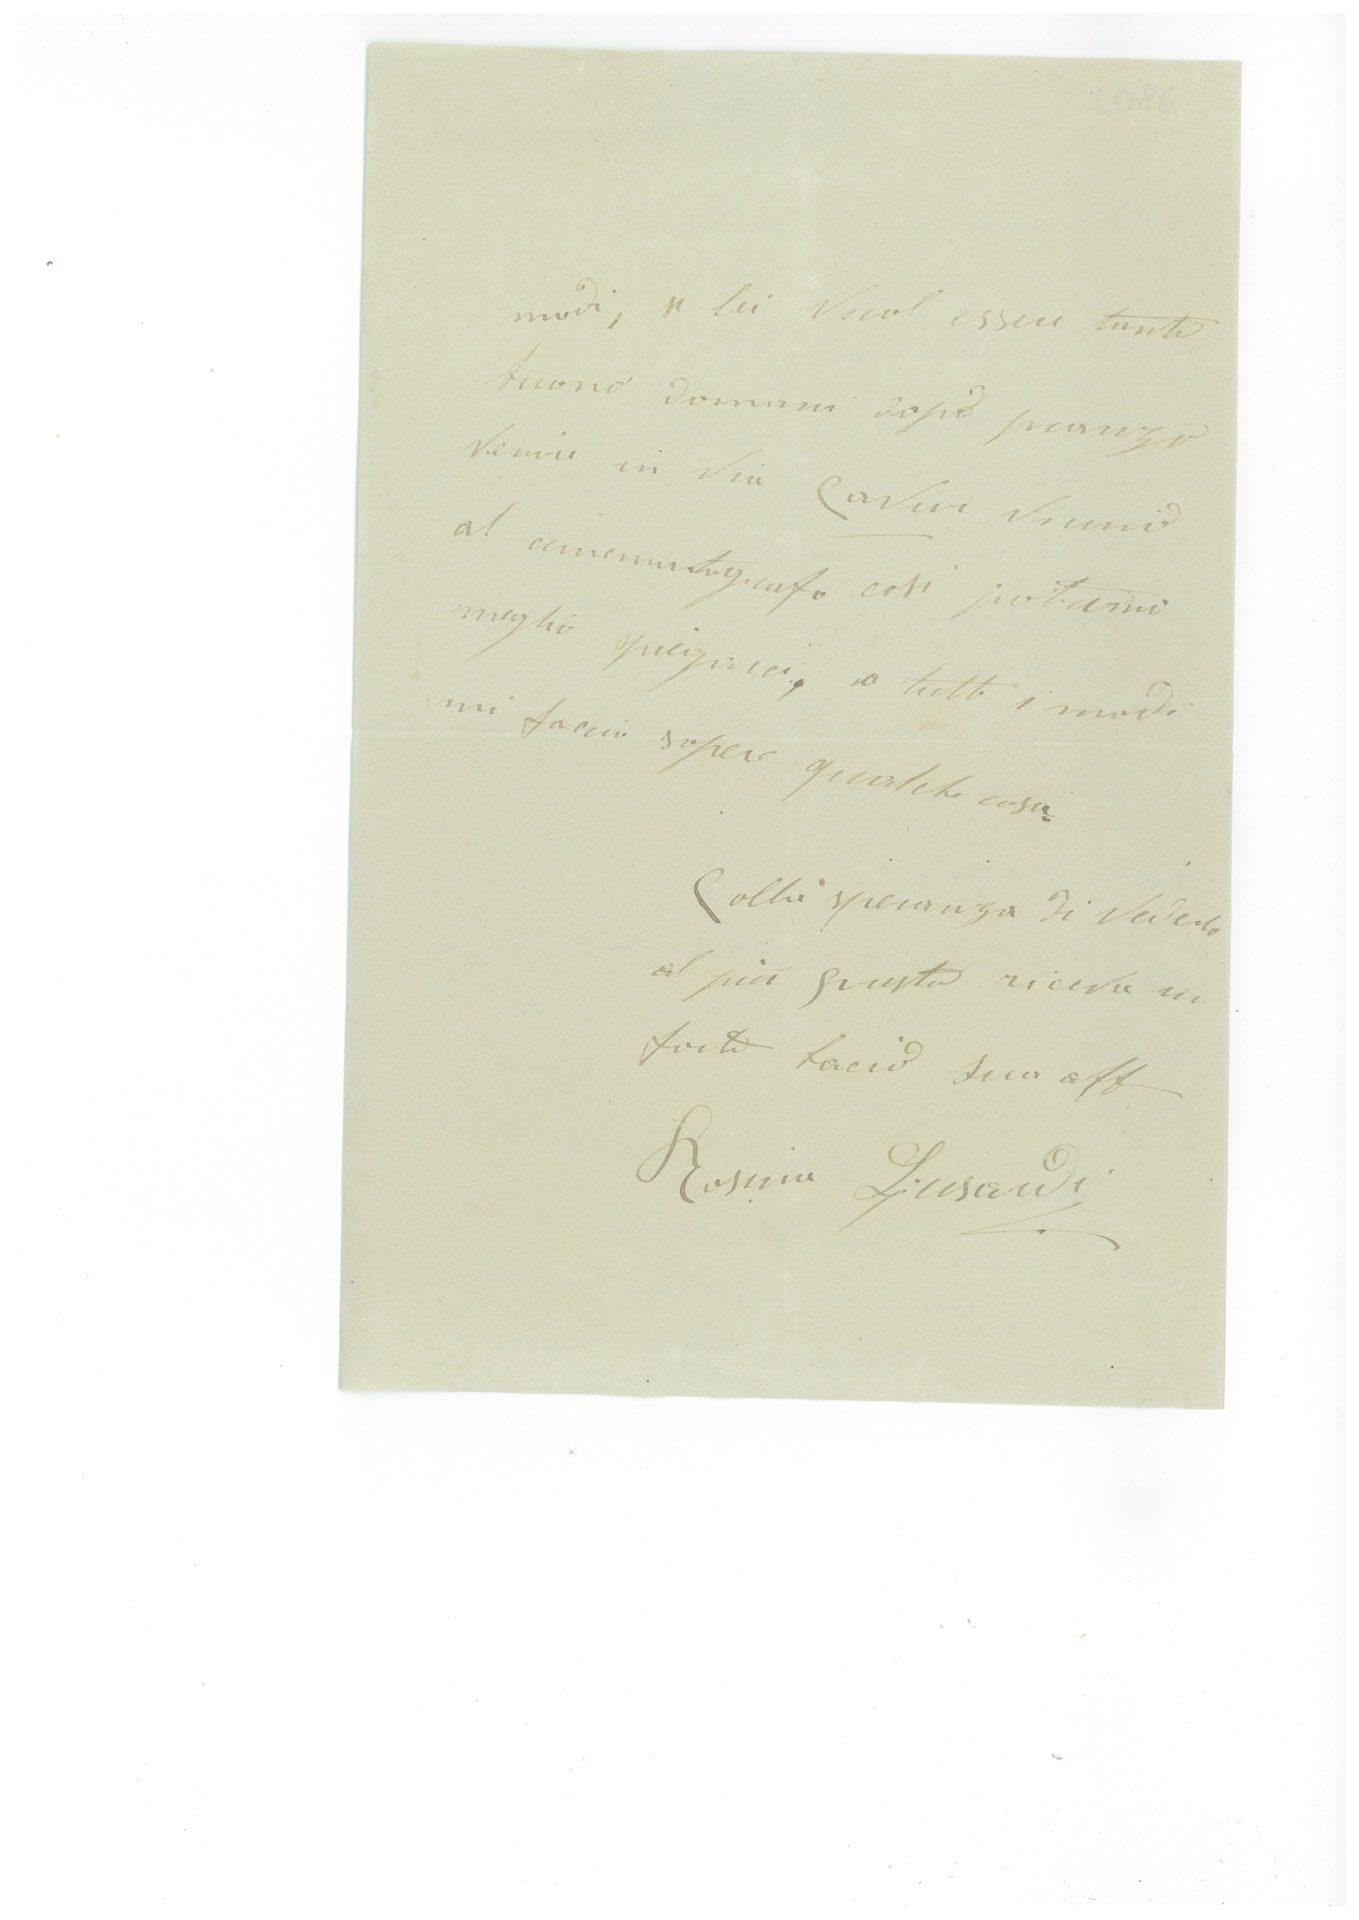 modi, se lei vuol essere tanto
buono domani dopo pranzo
venire in via Cavour vicino
al cinematografo così potremo
meglio spiegarci, a tutti i modi
mi faccia sapere qualche cosa.
Colla speranza di vederlo
al più presto riceva un
forte bacio sua aff
Rosina Lusardi